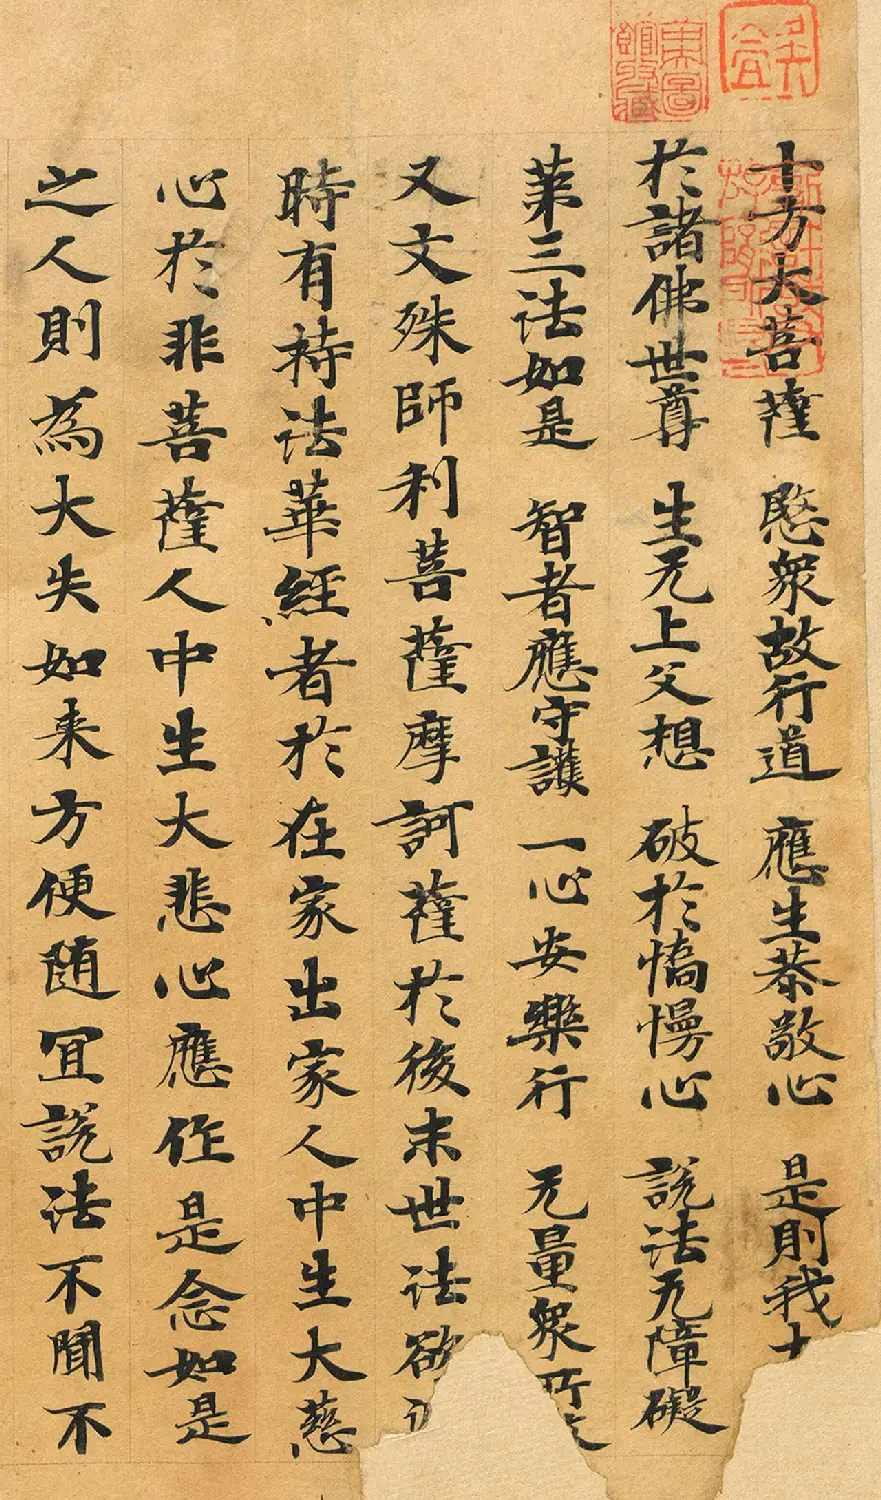 十方大菩薩 愍衆故行道 應生恭敬心 是則我大
於諸佛世尊 生无上父想 破於憍慢心 說法无障礙
苐三法如是 智者應守護 一心安樂行 无量衆所
又文殊師利菩薩摩訶薩於後末世法欲
時有持法華經者於在家出家人中生大慈
心於非菩薩人中生大悲心應作是念如是
之人則為大失如来方便随冝說法不聞不